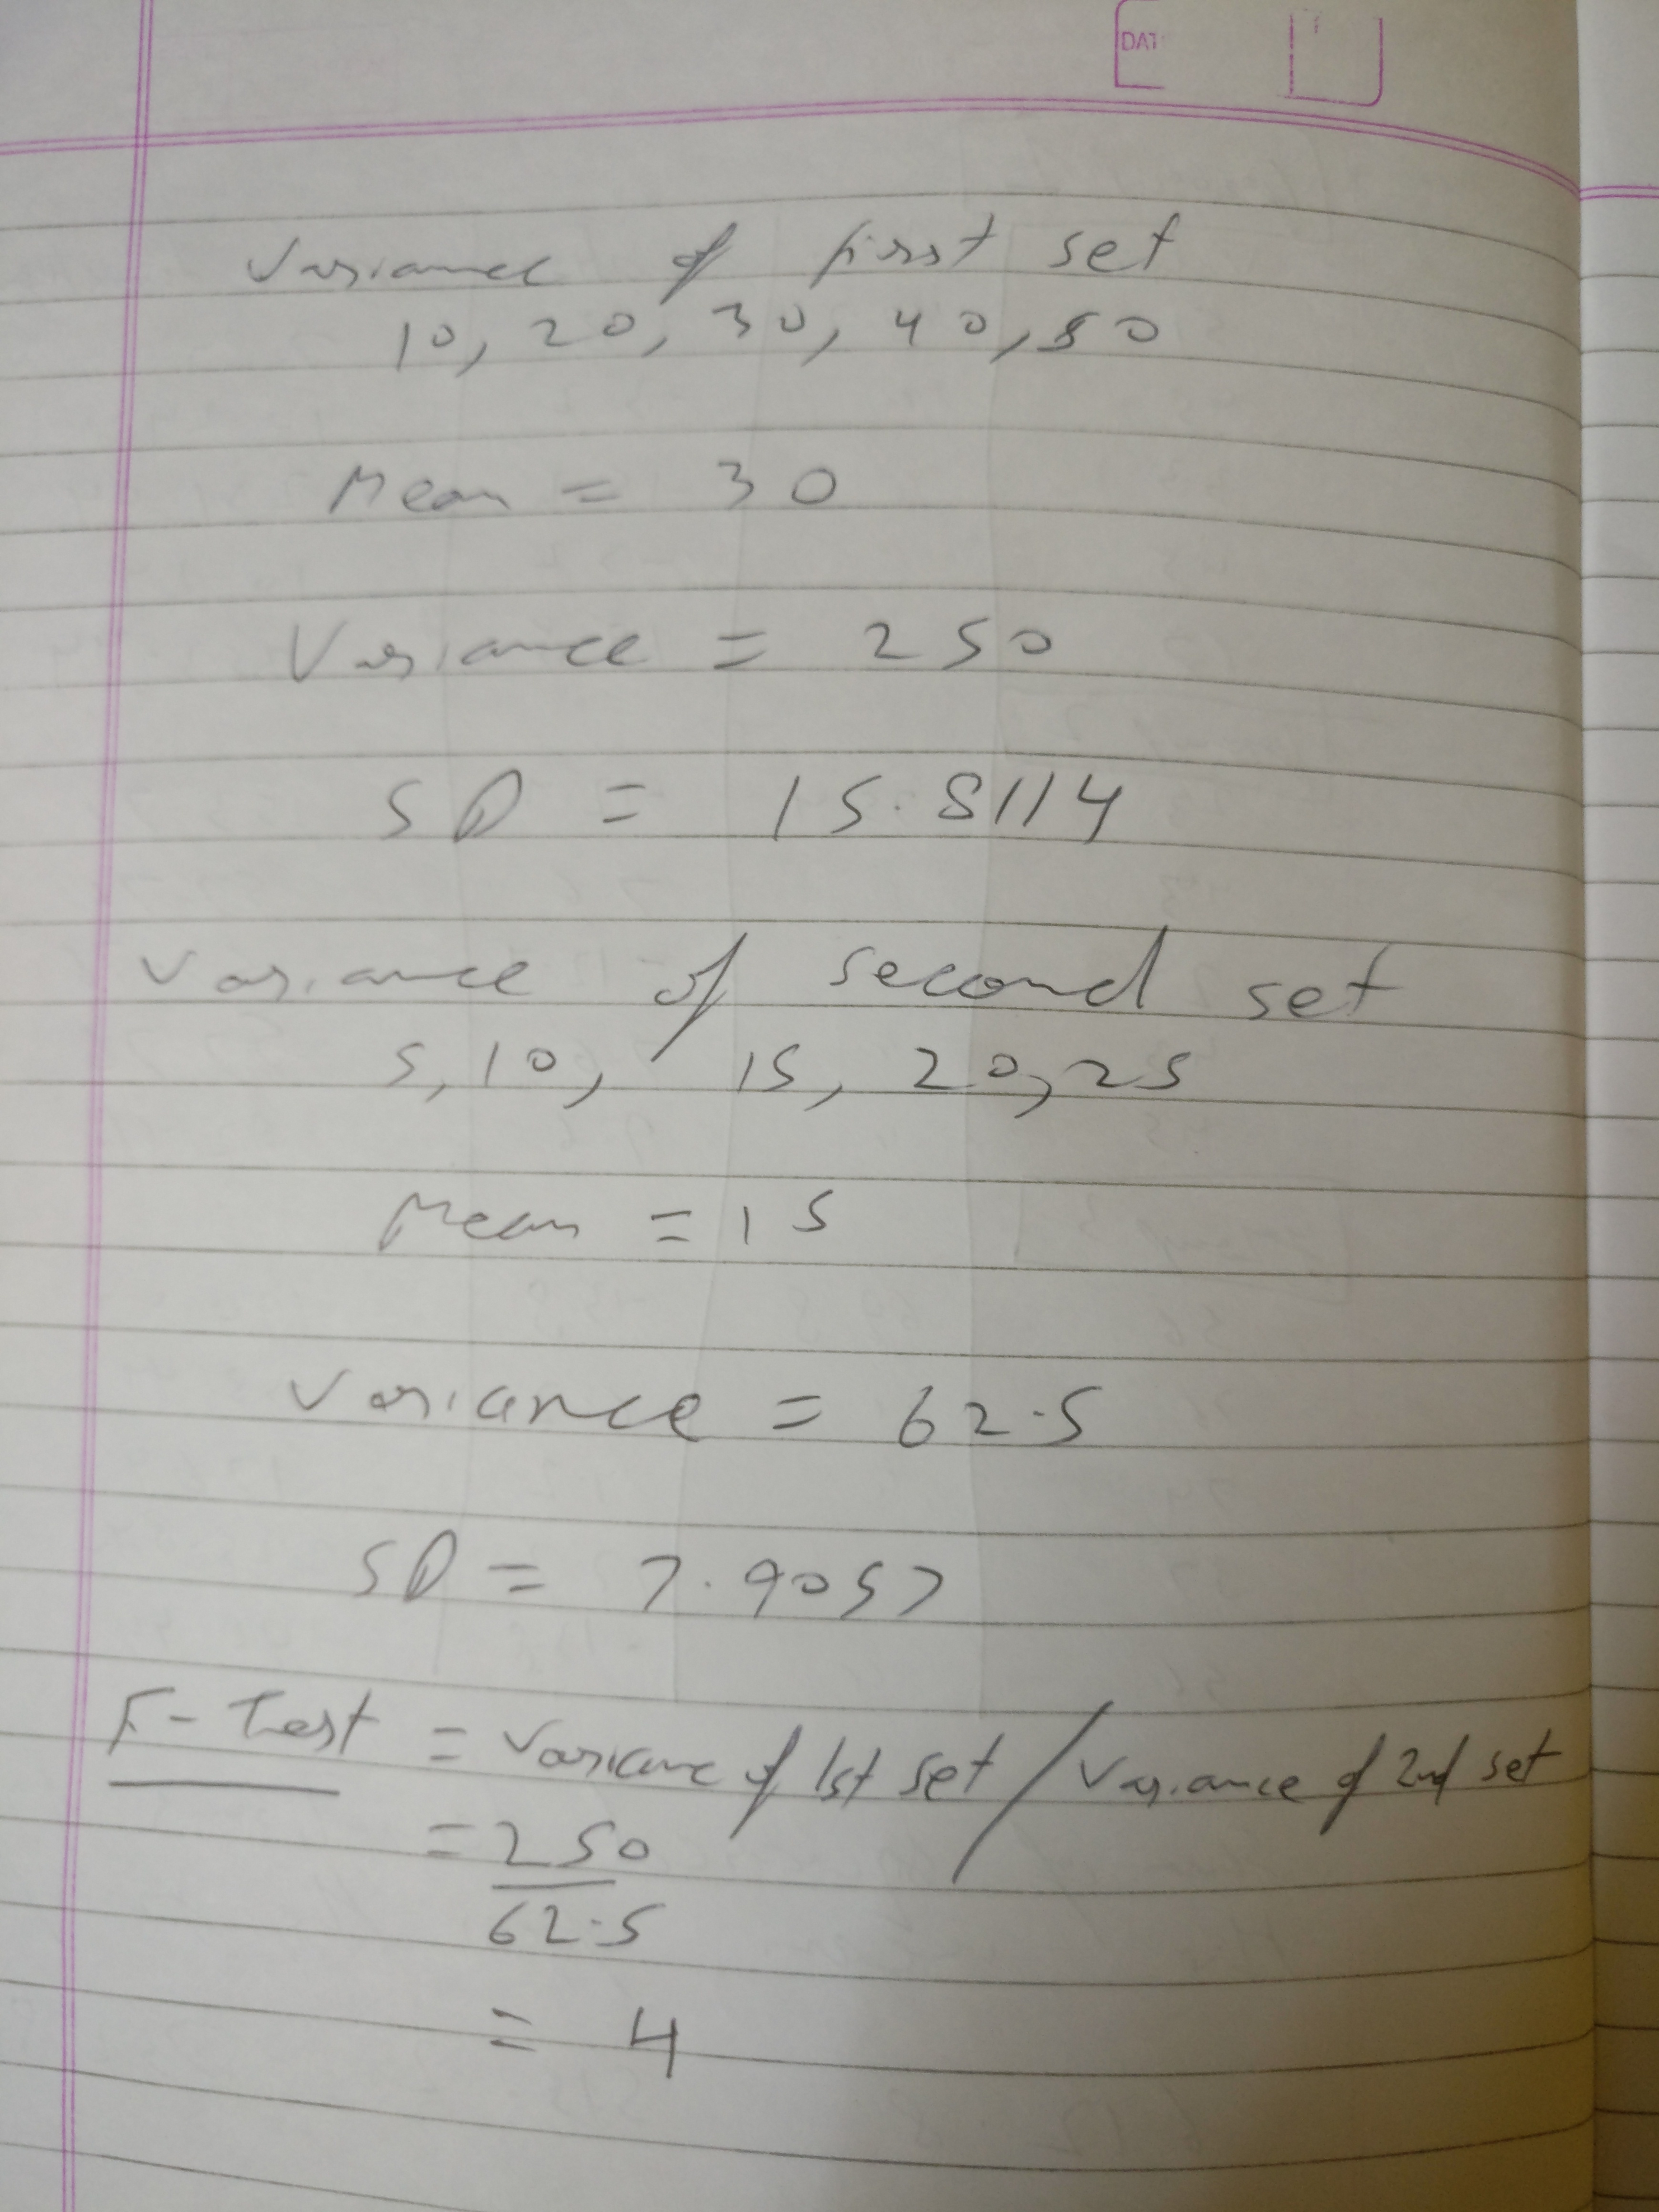 DAT
Variance of first set
10, 20, 30, 40, 50
Mean = 30
Variance = 250
SD = 15.8114
Variance of second set
5, 10, 15, 20, 25
Mean = 15
Variance = 62.5
SD = 7.9057
F-Test = Variance of 1st set / Variance of 2nd set
= 250
62.5
= 4